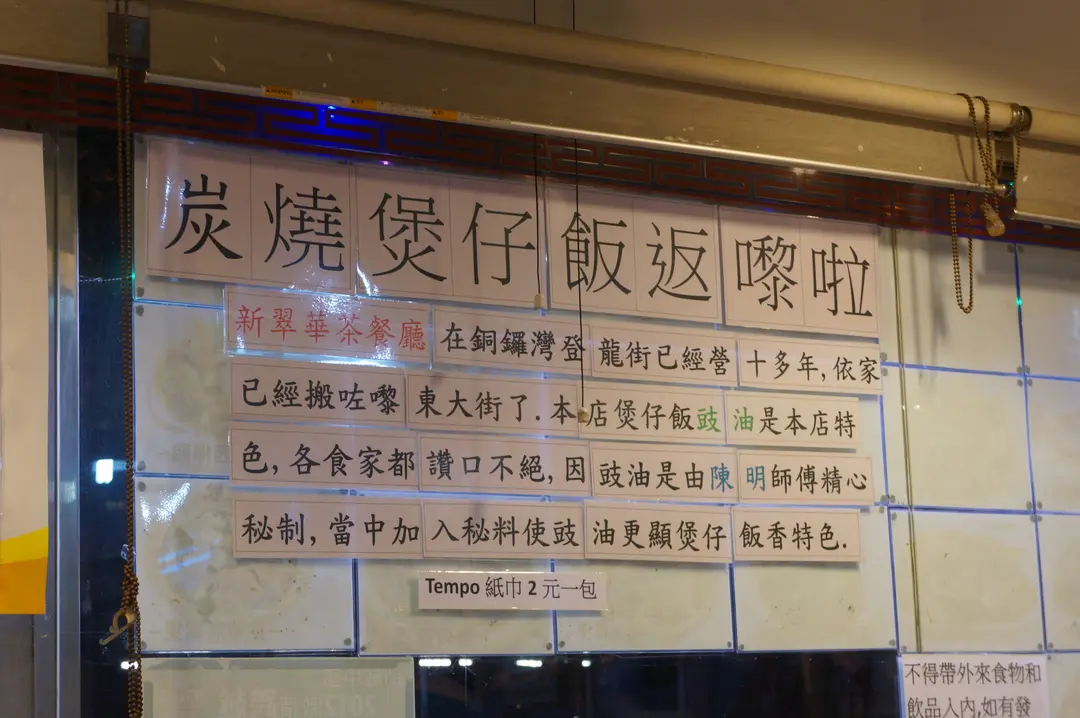 炭燒煲仔飯返嚟啦
新翠華茶餐廳在銅鑼灣登龍街已經營十多年,依家
已經搬咗嚟東大街了.本店煲仔飯豉油是本店特
色,各食家都讚口不絕,因豉油是由陳明師傅精心
秘制,當中加入秘料使豉油更顯煲仔飯香特色.
Tempo 紙巾 2 元一包
不得帶外來食物和
飲品入內,如有發